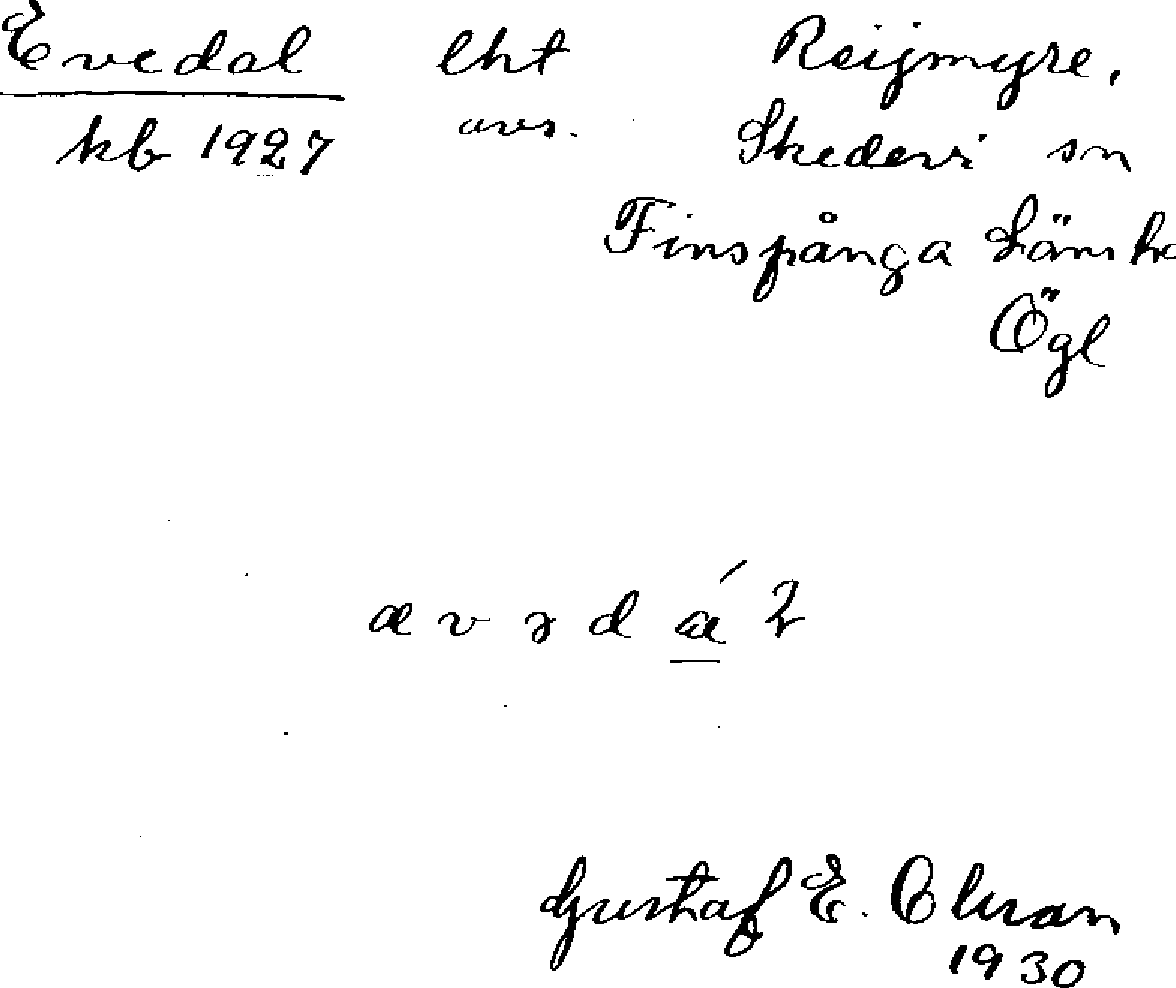 Evedal lht Reijmyre,
kb 1927 avs. Skedevi sn
Finspånga Läns h
Ögl
æ v ə d á l
Gustaf E. Olman
1930